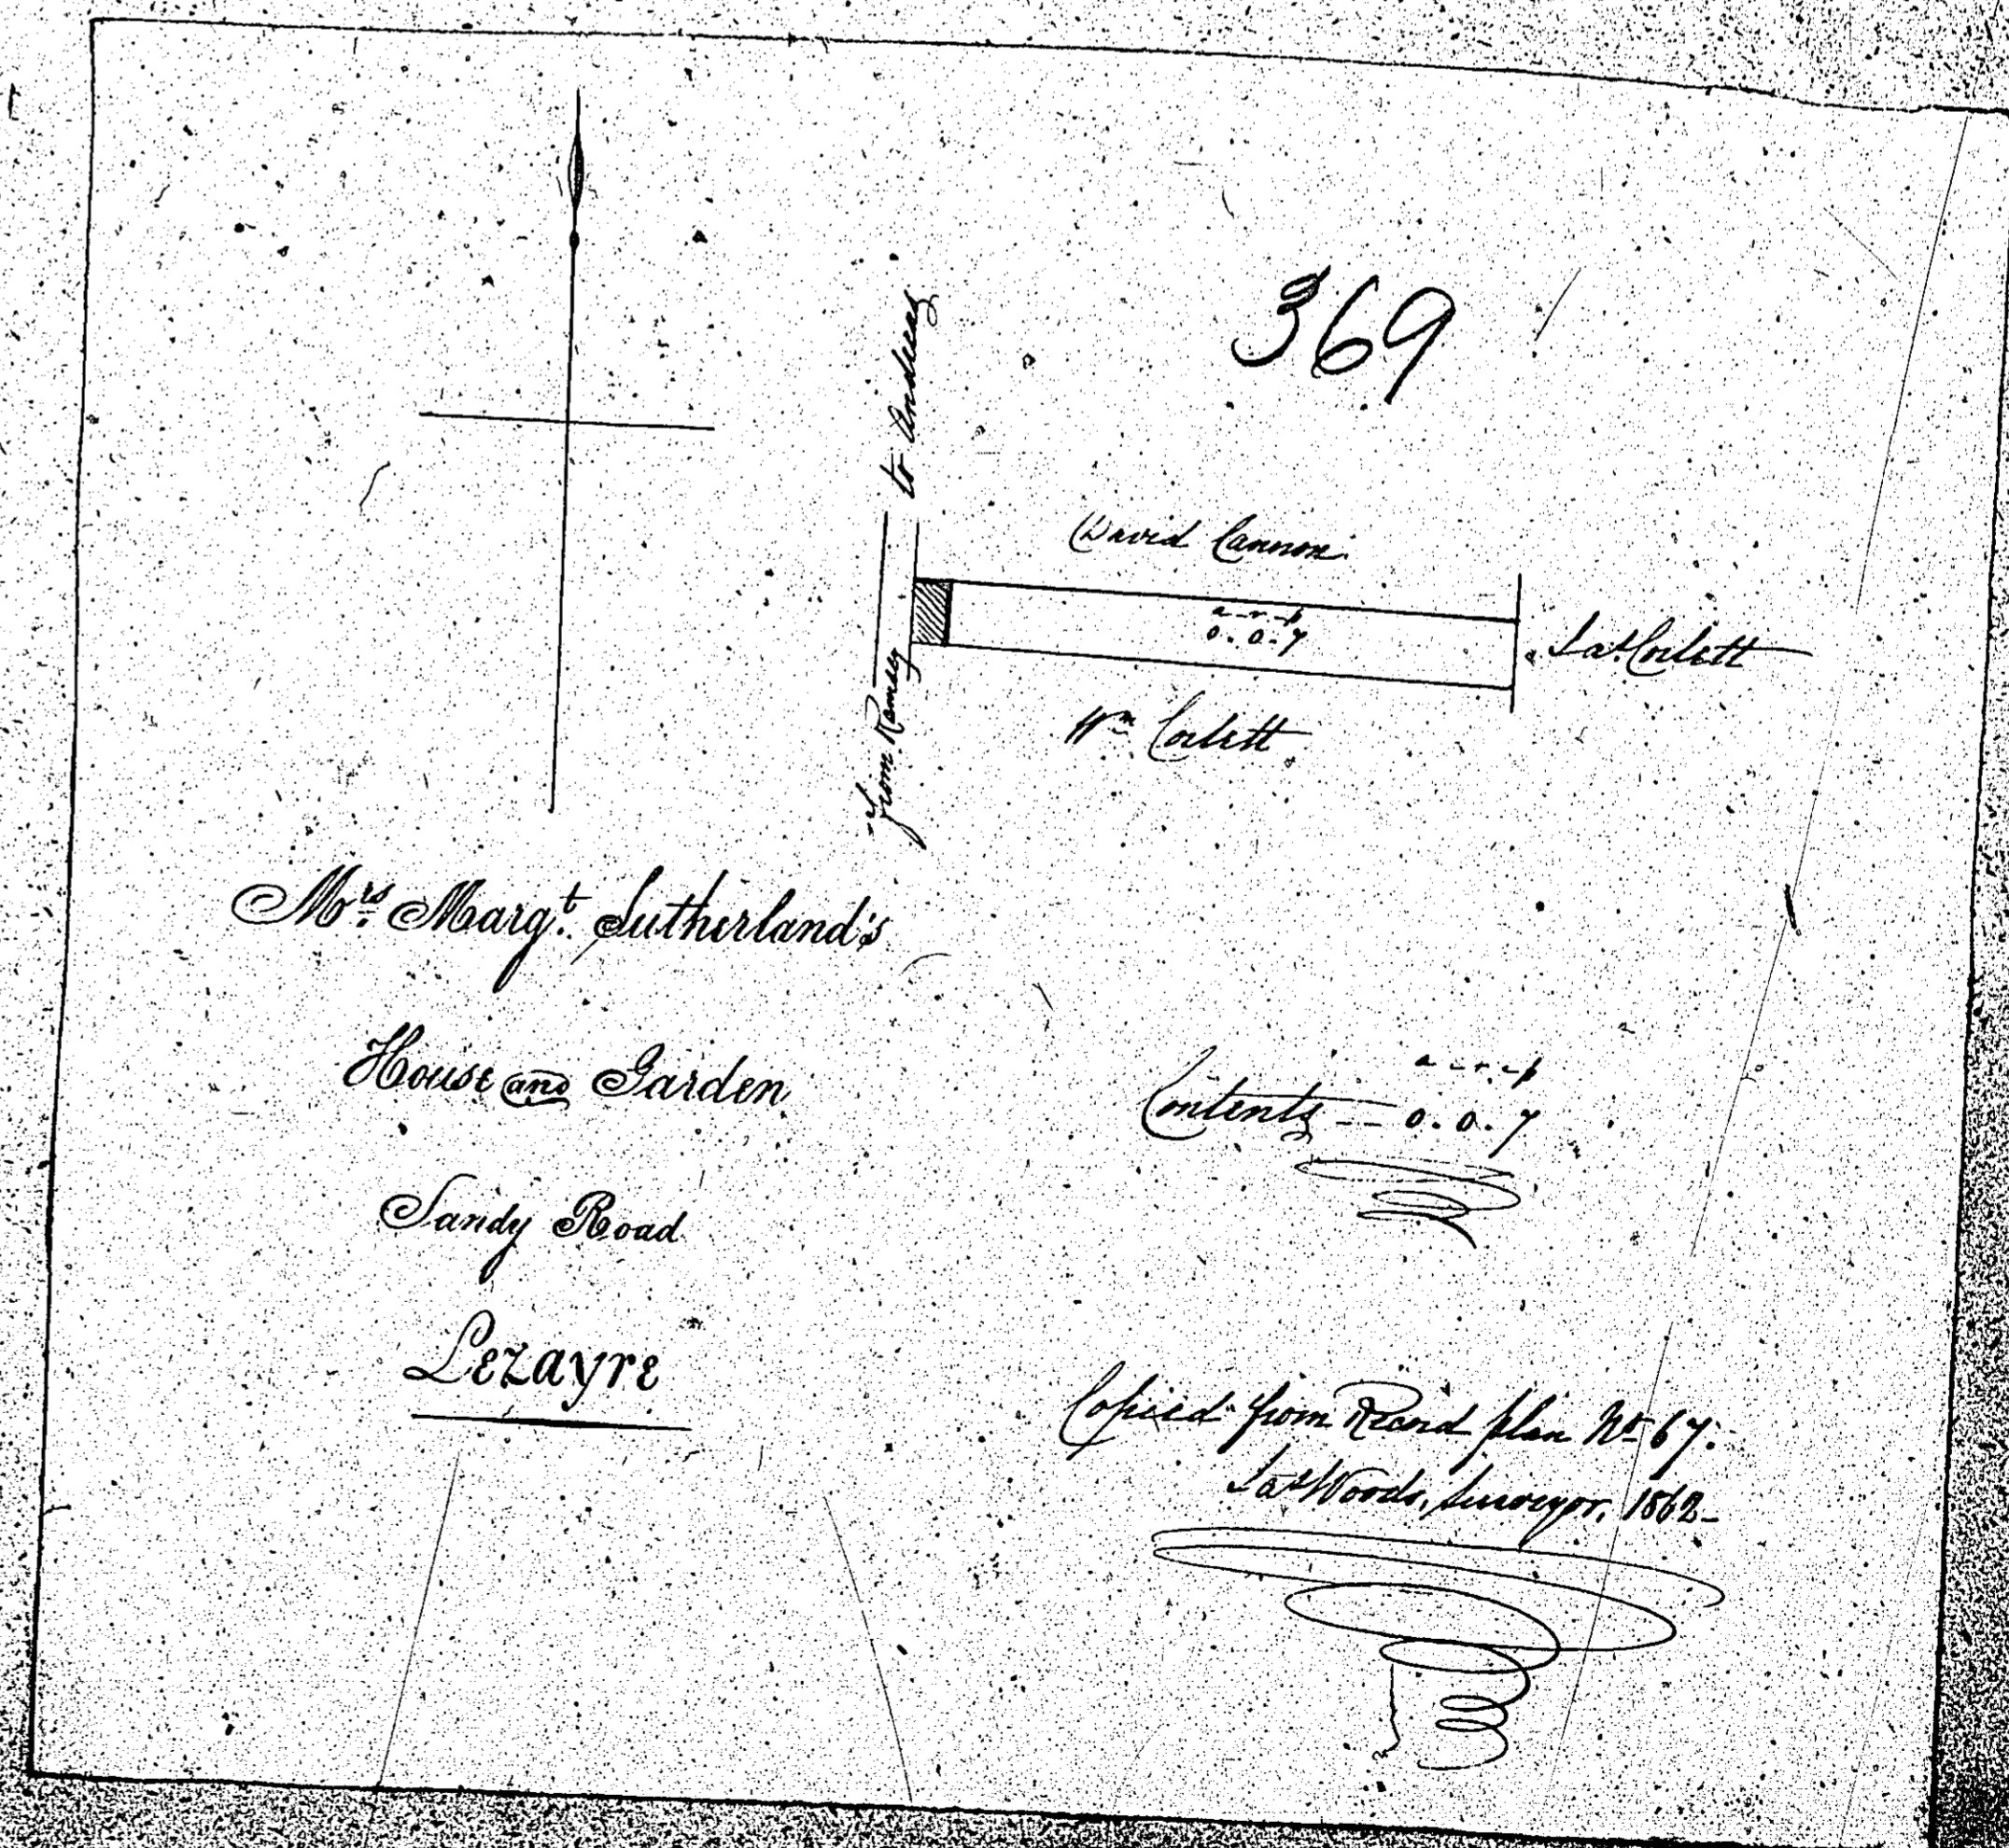 369
to Andreas
from Ramsey
David Cannon
a - r - p
0 . 0 . 7
Jas Corlett
Wm Corlett
Mrs. Margt. Sutherland's
House and Garden
Sandy Road
Lezayre
a - r - p
Contents -- 0 . 0 . 7
Copied from plan No 67.
Jas Woods, Surveyor, 1862 -